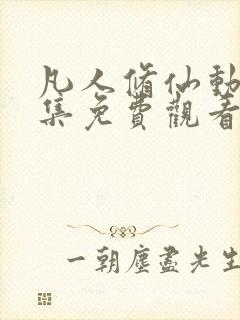 凡人脩仙動
集免費觀看
一朝塵盡光生